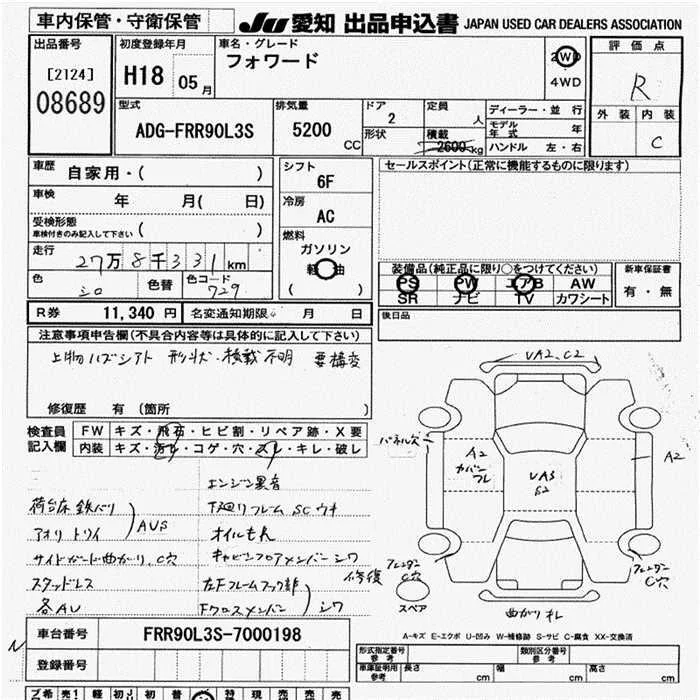 車内保管・守衛保管
JU 愛知 出品申込書 JAPAN USED CAR DEALERS ASSOCIATION
出品番号
[2124]
08689
初度登録年月
H18 05月
車名・グレード
フォワード
2WD
4WD
評価点
R
外装 内装
C
型式
ADG-FRR90L3S
排気量
5200 CC
ドア
2
形状
定員
人
積載
2600kg
ディーラー・並行
モデル年式 年
ハンドル 左・右
車歴 自家用・( )
車検 年 月( 日)
受検形態
車検付きのみ記入して下さい ( )
走行 27万8千331km
色 シロ 色替 色コード 729
シフト
6F
冷房
AC
燃料
ガソリン
軽油
( )
セールスポイント(正常に機能するものに限ります)
装備品(純正品に限り○をつけてください)
PS PW エアB AW
SR ナビ TV カワシート
新車保証書
有・無
R券 11,340円 名変通知期限 月 日
後日品
注意事項申告欄(不具合内容等は具体的に記入して下さい)
上物ハズシアト 形状・積載不明 要構変
修復歴 有(箇所 )
検査員記入欄
FW キズ・飛石・ヒビ割・リペア跡・X要
内装 キズ・汚レ・コゲ・穴・スレ・キレ・破レ
エンジン異音
荷台床鉄バリ
下廻リフレーム SCウキ
アオリトリイ
AUS
オイルもれ
サイドガード曲がり、C穴
キャビンフロアメンバーシワ
スタッドレス
左Fフレームフック部
各AU
Fクロスメンバー
シワ
修復
VA2、C2
パネル穴
A2
カバーフレ
VA3
S2
A2
フェンダーC穴
フェンダーC穴
スペア
曲がりキレ
車台番号 FRR90L3S-7000198
登録番号
A-キズ E-エクボ U-凹み W-補修跡 S-サビ C-腐食 XX-交換済
形式指定番号 参考
類別区分番号 参考
車庫証明用 参考 長さ cm 幅 cm 高さ cm